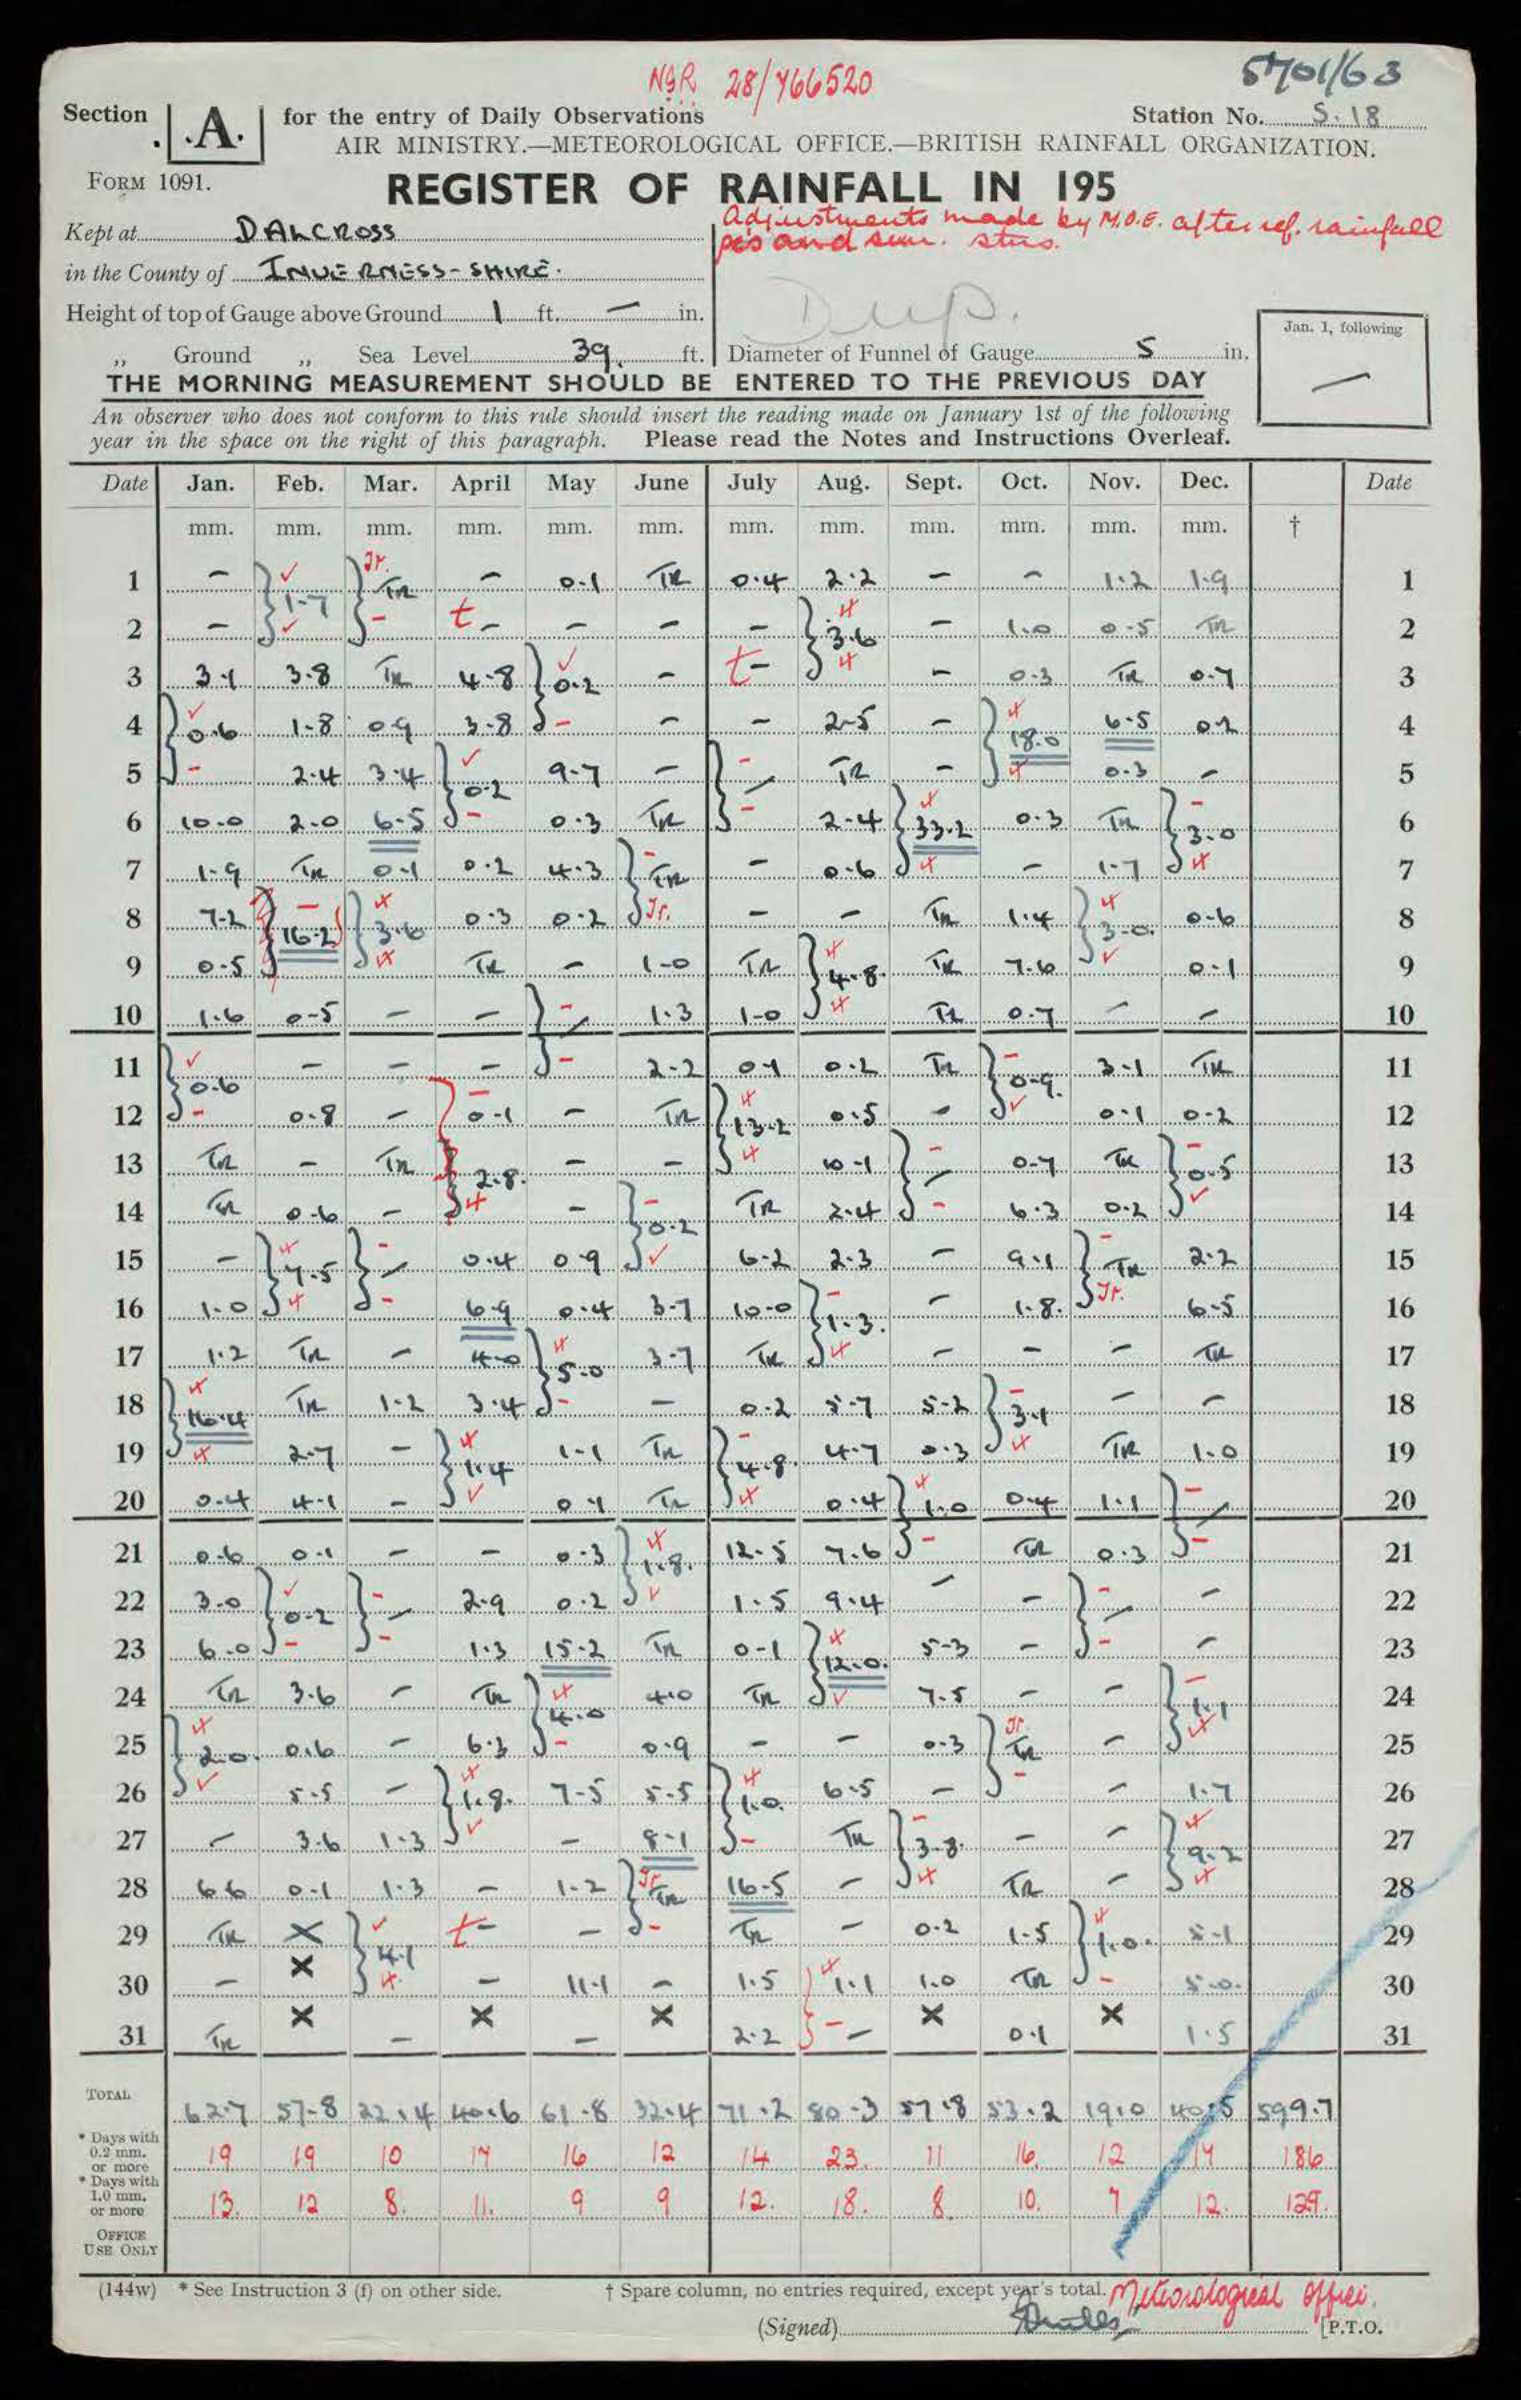 NGR 28/766520
5701/63
Section .A. for the entry of Daily Observations Station No. S.18
AIR MINISTRY.—METEOROLOGICAL OFFICE.—BRITISH RAINFALL ORGANIZATION.
FORM 1091.
REGISTER OF RAINFALL IN 195
Kept at DALCROSS
Adjustments made by M.O.E. after ref. rainfall
in the County of INVERNESS-SHIRE.
Dup.
Height of top of Gauge above Ground 1 ft. — in.
Jan. 1, following
„ Ground „ Sea Level 39. ft. Diameter of Funnel of Gauge 5 in.
THE MORNING MEASUREMENT SHOULD BE ENTERED TO THE PREVIOUS DAY
—
An observer who does not conform to this rule should insert the reading made on January 1st of the following
year in the space on the right of this paragraph. Please read the Notes and Instructions Overleaf.
Date Jan. Feb. Mar. April May June July Aug. Sept. Oct. Nov. Dec. Date
mm. mm. mm. mm. mm. mm. mm. mm. mm. mm. mm. mm. †
1 — } 1.7 ✓ } TR Tr. — 0.1 TR 0.4 2.2 — — 1.2 1.9 1
2 — ✓ — t — — — — } 3.6 4 — 1.0 0.5 TR 2
3 3.1 3.8 TR 4.8 } 0.2 ✓ — t — 4 — 0.3 TR 0.7 3
4 } 0.6 ✓ 1.8 0.9 3.8 — — — 2.5 — } 18.0 4 6.5 0.2 4
5 — 2.4 3.4 } 0.2 ✓ 9.7 — } — TR — 4 0.3 — 5
6 10.0 2.0 6.5 — 0.3 TR — 2.4 } 33.2 4 0.3 TR } 3.0 — 6
7 1.9 TR 0.1 0.2 4.3 } TR — — 0.6 4 — 1.7 4 7
8 7.2 } 16.2 — } 3.6 4 0.3 0.2 Tr. — — TR 1.4 } 3.0. 4 0.6 8
9 0.5 4 TR — 1.0 TR } 4.8. 4 TR 7.6 ✓ 0.1 9
10 1.6 0.5 — — } — 1.3 1.0 4 TR 0.7 — — 10
11 } 0.6 ✓ — — — — 2.2 0.1 0.2 TR } 0.9. — 3.1 TR 11
12 — 0.8 — 0.1 — — TR } 13.2 4 0.5 — ✓ 0.1 0.2 12
13 TR — TR } 2.8. — — 4 10.1 } — 0.7 TR } 0.5 — 13
14 TR 0.6 — 4 — } 0.2 — TR 2.4 — 6.3 0.2 ✓ 14
15 — } 7.5 4 } — 0.4 0.9 ✓ 6.2 2.3 — 9.1 } TR — 2.2 15
16 1.0 4 — 6.9 0.4 3.7 10.0 } 1.3. — — 1.8. Tr. 6.5 16
17 1.2 TR — 4.0 } 5.0 4 3.7 TR 4 — — — TR 17
18 } 16.4 4 TR 1.2 3.4 — — 0.2 5.7 5.2 } 3.1 — — — 18
19 4 2.7 — } 1.4 4 1.1 TR } 4.8. — 4.7 0.3 4 TR 1.0 19
20 0.4 4.1 — ✓ 0.1 TR 4 0.4 } 1.0 4 0.4 1.1 } — 20
21 0.6 0.1 — — 0.3 } 1.8. 4 12.5 7.6 — TR 0.3 — 21
22 3.0 } 0.2 ✓ } — 2.9 0.2 ✓ 1.5 9.4 — — } — — 22
23 6.0 — — 1.3 15.2 TR 0.1 } 12.0. 4 5.3 — — — 23
24 TR 3.6 — TR } 4.0 4 4.0 TR ✓ 7.5 — — } 1.1 — 24
25 } 2.0. 4 0.6 — 6.3 — 0.9 — — 0.3 } TR Tr. — 4 25
26 ✓ 5.5 — } 1.8. 4 7.5 5.5 } 1.0. 4 6.5 — — — 1.7 26
27 — 3.6 1.3 ✓ — 8.1 — TR } 3.8. — — — } 9.2 4 27
28 6.6 0.1 1.3 — 1.2 } TR Tr. 16.5 — 4 TR — 4 28
29 TR X } 4.1 ✓ t — — — TR — 0.2 1.5 } 1.0. 4 5.1 29
30 — X 4 — 11.1 — 1.5 } 1.1 4 1.0 TR — 5.0. 30
31 TR X — X — X 2.2 — — X 0.1 X 1.5 31
TOTAL 62.7 57.8 22.4 40.6 61.8 32.4 71.2 80.3 57.8 53.2 19.0 40.5 599.7
* Days with
0.2 mm.
or more 19 19 10 17 16 12 14 23. 11 16. 12 17 186
* Days with
1.0 mm.
or more 13. 12 8. 11. 9 9 12. 18. 8 10. 7 12. 129.
OFFICE
USE ONLY
(144w) * See Instruction 3 (f) on other side. † Spare column, no entries required, except year's total. Meteorological Office.
(Signed) [P.T.O.